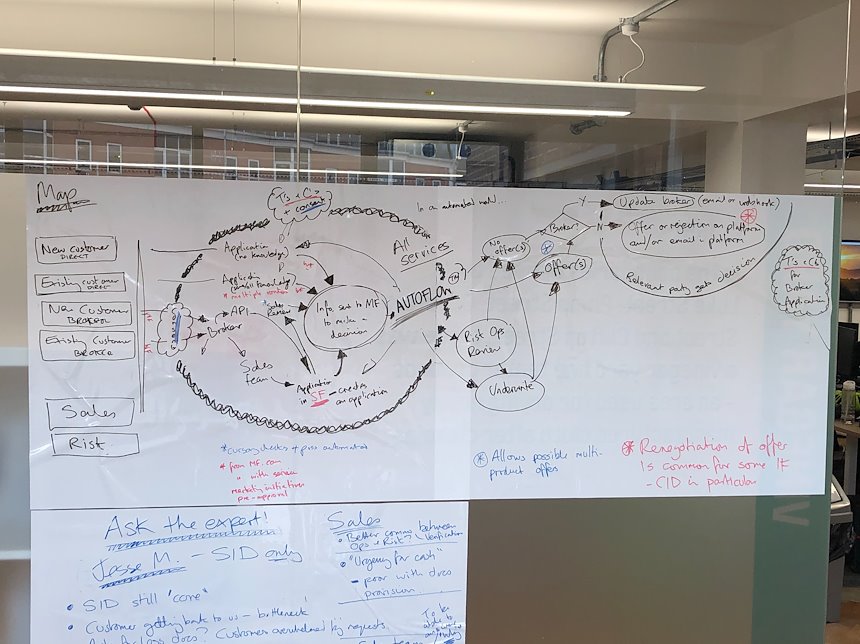 Map
New customer
DIRECT
Existing customer
DIRECT
New Customer
BROKER
Existing Customer
BROKER
Sales
Risk
T's + C's
+ consent
Application
(no knowledge)
Application
* multiple
API
Sales
Review
Broker
Sales
team
Application
in SF - creates
an application
Info sent to MF
to make a
decision
All
services
AUTOFLOW
In a automated world...
No
offer(s)
Offer(s)
Broker
Y
N
Risk Ops
Review
Underwrite
Update broker (email or webhook)
Offer or rejection on platform
and/or email in platform
Relevant party gets decision
T's + C's
for
Broker
Application
* from MF.com
" with
marketing initiatives
pre-approval
* Allows possible multi-
product offers
* Renegotiation of offer
is common for some IF
- CID in particular
Ask the expert!
Jesse M. - SID only
• SID still 'core'
• Customer getting back to us - bottleneck!
docs? Customers overwhelmed by requests.
Sales
• Better comms between
Ops + Risk? + Verification
• "Urgency for cash"
- poor with docs
provision.
To be
able to